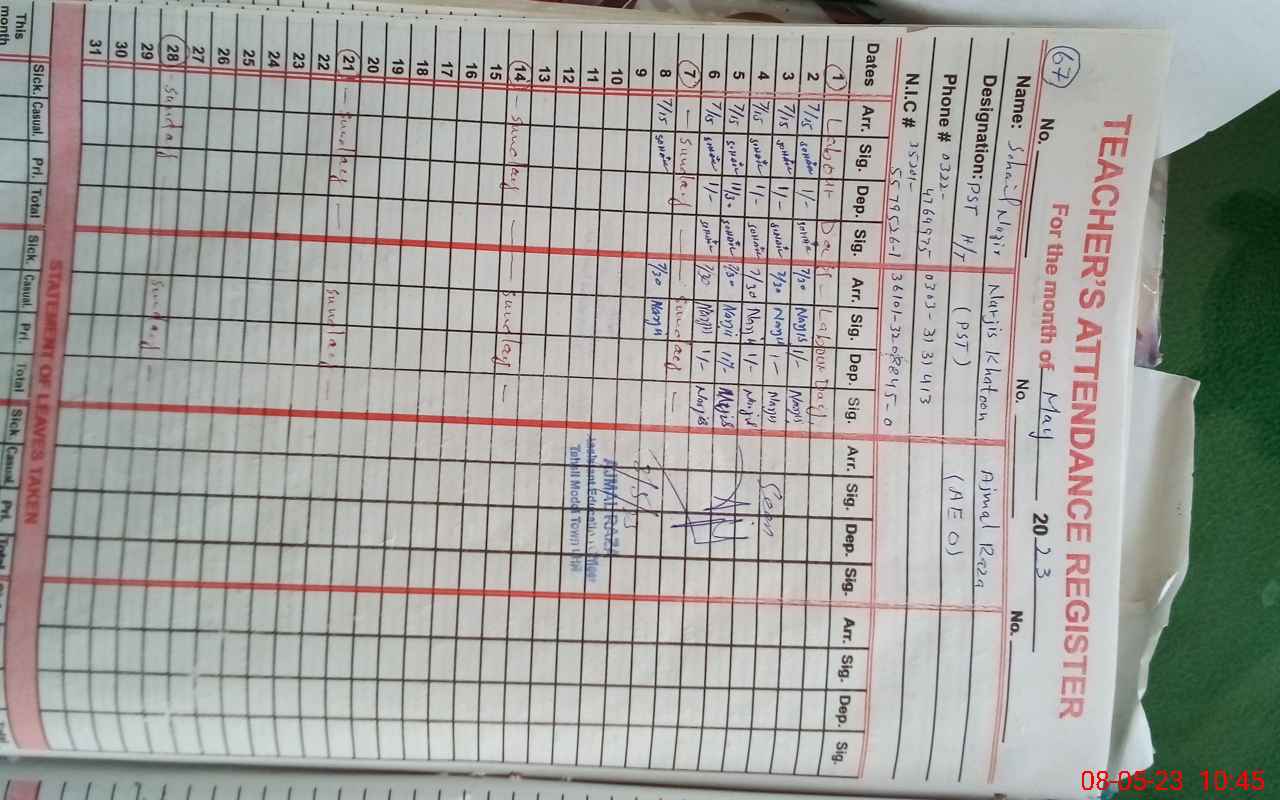 67
TEACHER'S ATTENDANCE REGISTER
For the month of May 2023
No. No. No.
Name: Sohail Nazir Narjis Khatoon Ajmal Raza
Designation: PST H/T (PST) (AEO)
Phone # 0322- 4769975 0303-3131413
N.I.C # 35201- 5579526-1 36101-3208845-0
Dates Arr. Sig. Dep. Sig. Arr. Sig. Dep. Sig. Arr. Sig. Dep. Sig. Arr. Sig. Dep. Sig.
1 Labour Day - Labour Day
2 7/15 SOHAIL 1/- SOHAIL 7/30 Narjis 1/- Narjis
3 7/15 SOHAIL 1/- SOHAIL 7/30 Narjis 1- Narjis
4 7/15 SOHAIL 1/- SOHAIL 7/30 Narjis 1/- Narjis Seen
5 7/15 SOHAIL 11/30 SOHAIL 7/30 Narjis Narjis
6 7/15 SOHAIL 1/- SOHAIL 7/30 Narjis 1/- Narjis
7 - Sunday - - Sunday -
8 7/15 SOHAIL 7/30 Narjis
9
10
AJMAL RAZA
11
Assistant Education Officer
12
Tehsil Model Town LHR
13
14 - Sunday - - Sunday -
15
16
17
18
19
20
21 - Sunday - Sunday -
22
23
24
25
26
27
28 - Sunday Sunday -
29
30
31
STATEMENT OF LEAVES TAKEN
Sick. Casual. Pri. Total Sick. Casual. Pri. Total Sick Casual. Pri. Total
This month
08-05-23 10:45